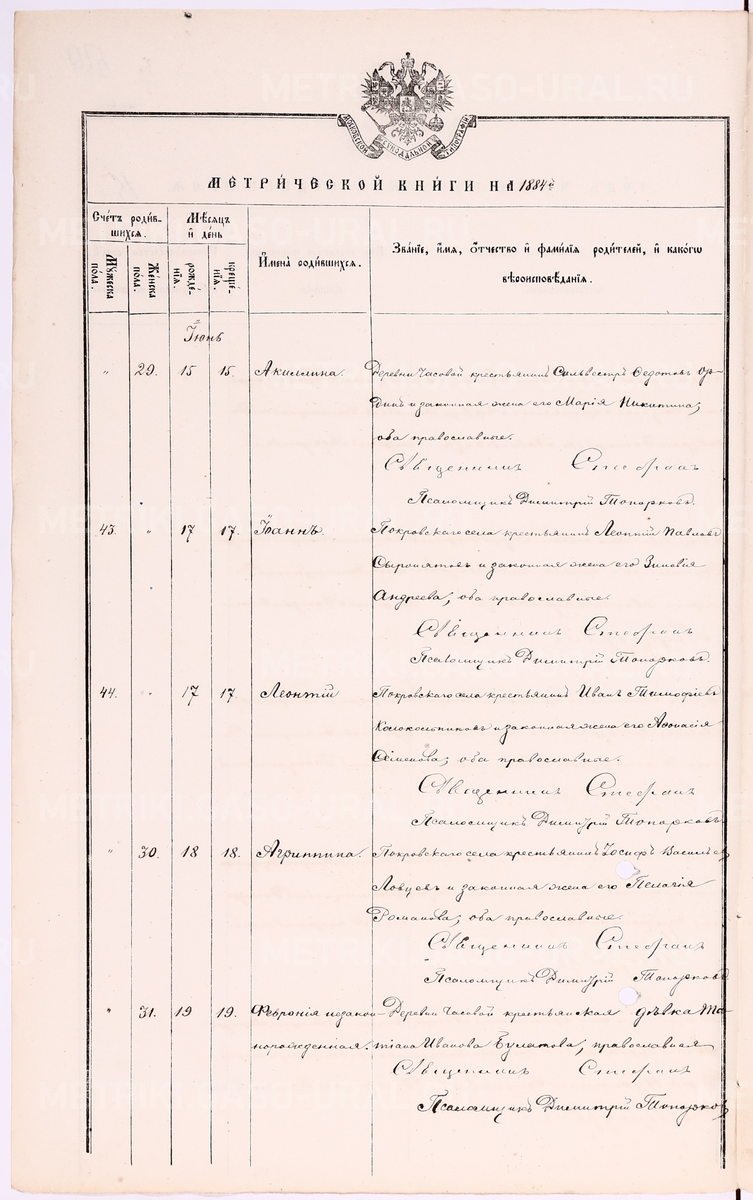 METRIKI.GASO-URAL.RU
МОСКОВСКОЙ СѴНОДАЛЬНОЙ ТИПОГРАФІИ
МЕТРИ́ЧЕСКОЙ КНИ́ГИ НА 1884 г.
Сче́тъ роди́вшихся.
Мꙋ́жеска по́ла.
Же́нска по́ла.
Мѣ́сяцъ и҆ де́нь
рожде́нїѧ.
креще́нїѧ.
И҆мена̀ роди́вшихся.
Зва́нїе, и҆́мѧ, ѻ҆́тчество и҆ фами́лїѧ роди́телей, и҆ како́гѡ
вѣроисповѣ́данїѧ.
Іюнь
" 29. 15 15. Акиллина. Деревни Часовой крестьянинъ Сильвестръ Ѳедотовъ Ор-
динъ и законная жена его Марія Никитина;
оба православные.
Священникъ Стефанъ
Псаломщикъ Димитрій Топорковъ.
43. " 17 17. Іоаннъ. Покровскаго села крестьянинъ Леонтій Павловъ
Сыромятовъ и законная жена его Зиновія
Андреева, оба православные.
Священникъ Стефанъ
Псаломщикъ Димитрій Топорковъ.
44. " 17 17 Леонтій Покровскаго села крестьянинъ Иванъ Тимофіевъ
Колокольниковъ и законная жена его Аѳанасія
Семенова; оба православные.
Священникъ Стефанъ
Псаломщикъ Димитрій Топорковъ
" 30. 18 18. Агриппина. Покровскаго села крестьянинъ Іосифъ Васильевъ
Ловцевъ и законная жена его Пелагія
Романова, оба православные.
Священникъ Стефанъ
Псаломщикъ Димитрій Топорковъ
" 31. 19 19. Феѵронія незакон- Деревни Часовой крестьянская дѣвка Та-
норожденная. тіана Иванова Булатова, православная
Священникъ Стефанъ
Псаломщикъ Димитрій Топорковъ